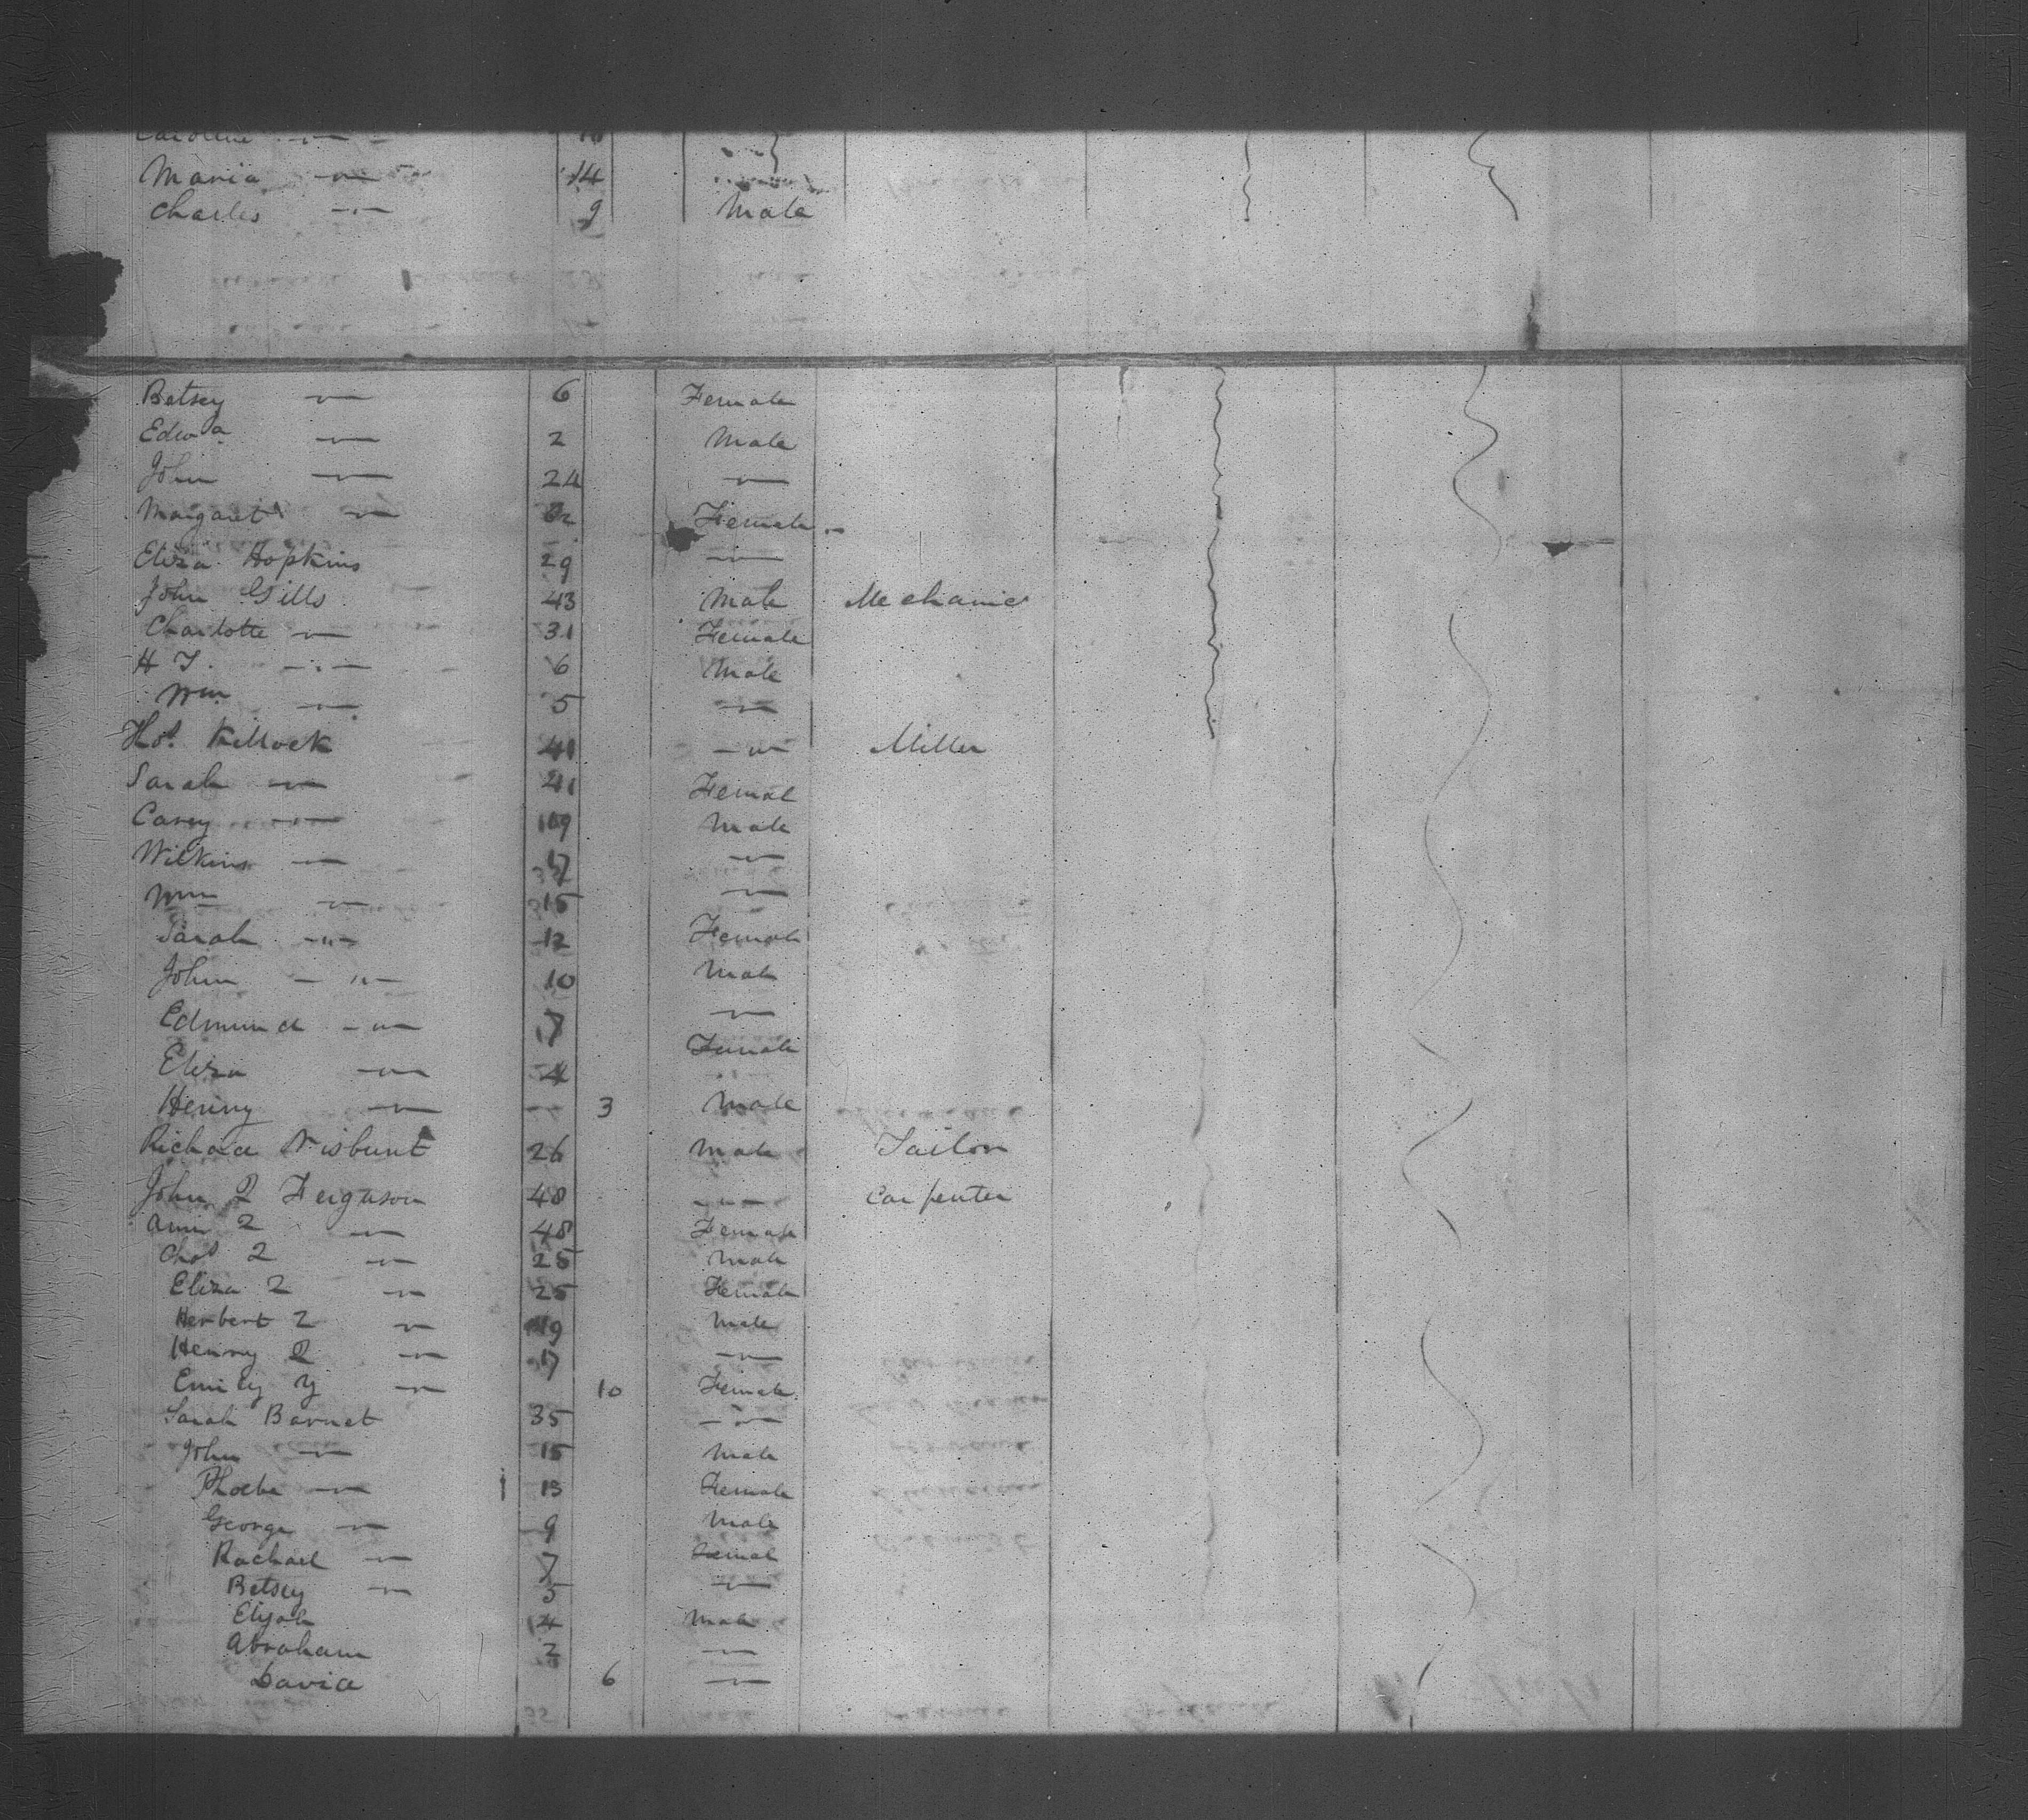 Caroline —"—
Maria —"— 14
Charles —"— 9 Male
Betsey —"— 6 Female
Edwd —"— 2 Male
John —"— 24 —"—
Margaret —"— Female
Eliza Hopkins 29 —"—
John Gills 43 Male Mechanic
Charlotte —"— 31 Female
H T —"— 6 Male
Wm —"— 5 —"—
Thos Killock 41 —"— Miller
Sarah —"— 41 Femal
Carey —"— 19 Male
Wilkins —"— 17 —"—
Wm —"— 15 —"—
Sarah —"— 12 Female
John —"— 10 Male
Edmund —"— 7 —"—
Eliza —"— 4 Female
Henry —"— — 3 Male
Richard 26 Male Tailor
John 2 Ferguson 48 —"— Carpenter
Ann 2 —"— 48 Female
Chas 2 —"— 25 Male
Eliza 2 —"— 25 Female
Herbert 2 —"— 19 Male
Henry 2 —"— 17 —"—
Emily y —"— 10 Female
Sarah Barnet 35 —"—
John —"— 15 Male
Phoebe —"— 13 Female
George —"— 9 Male
Rachael —"— 7 Femal
Betsey —"— 5 —"—
Elijah 4 Male
Abraham 2 —"—
David 6 —"—